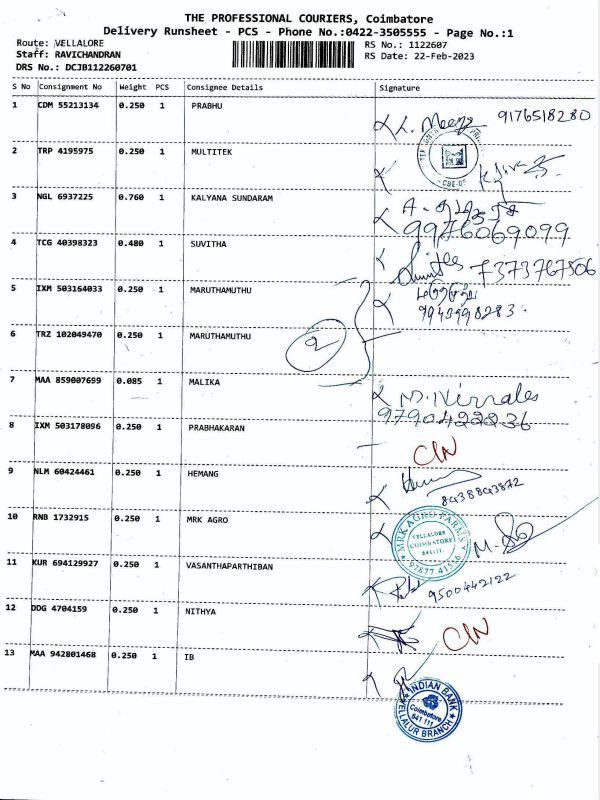 THE PROFESSIONAL COURIERS, Coimbatore
Delivery Runsheet - PCS - Phone No.:0422-3505555 - Page No.:1
Route: VELLALORE
RS No.: 1122607
Staff: RAVICHANDRAN
RS Date: 22-Feb-2023
DRS No.: DCJB112260701
S No Consignment No Weight PCS Consignee Details Signature
1 CDM 55213134 0.250 1 PRABHU
9176518280
2 TRP 4195975 0.250 1 MULTITEK
3 NGL 6937225 0.760 1 KALYANA SUNDARAM
9976069099
4 TCG 40398323 0.480 1 SUVITHA
7373767506
5 IXM 503164033 0.250 1 MARUTHAMUTHU
6 TRZ 102049470 0.250 1 MARUTHAMUTHU
2
7 MAA 859007699 0.085 1 MALIKA
9790422236
8 IXM 503178096 0.250 1 PRABHAKARAN
C/N
9 NLM 60424461 0.250 1 HEMANG
8938893872
10 RNB 1732915 0.250 1 MRK AGRO
MRK AGRO FARMS
VELLALORE
COIMBATORE
641 111.
97877 41516
11 KUR 694129927 0.250 1 VASANTHAPARTHIBAN
9500442122
12 DDG 4704159 0.250 1 NITHYA
C/N
13 MAA 942801468 0.250 1 IB
INDIAN BANK
Coimbatore
641 111
VELLALUR BRANCH